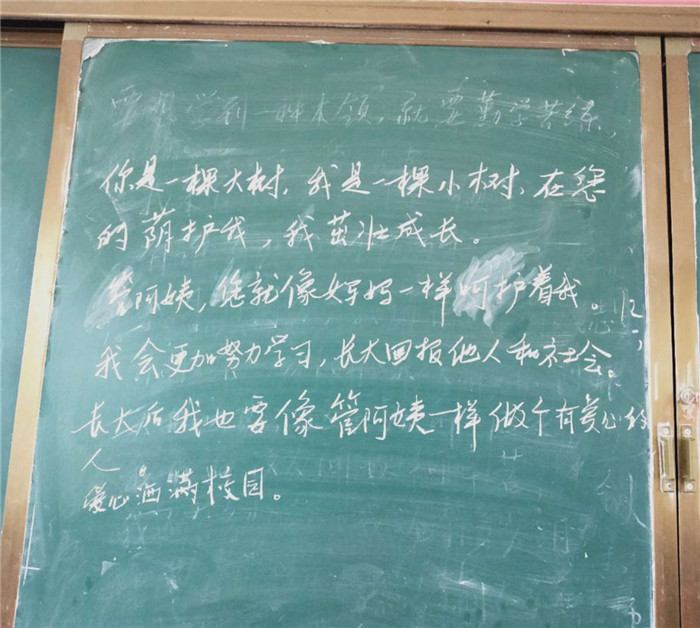 要想学到一种本领,就要勤学苦练,
你是一棵大树,我是一棵小树,在您
的荫护我,我茁壮成长。
管阿姨,您就像妈妈一样呵护着我。
我会更加努力学习,长大回报他人和社会。
长大后我也要像管阿姨一样做个有爱心的
人
爱心洒满校园。